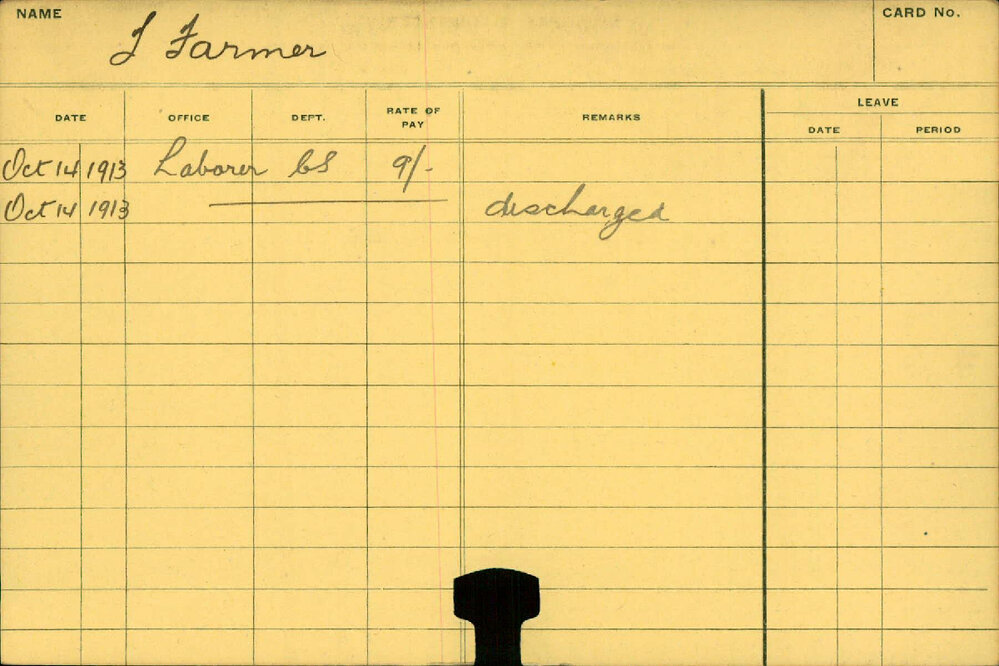 NAME
CARD No.
J Farmer
LEAVE
DATE OFFICE DEPT. RATE OF PAY REMARKS DATE PERIOD
Oct 14 1913 Laborer CS 9/-
Oct 14 1913 discharged